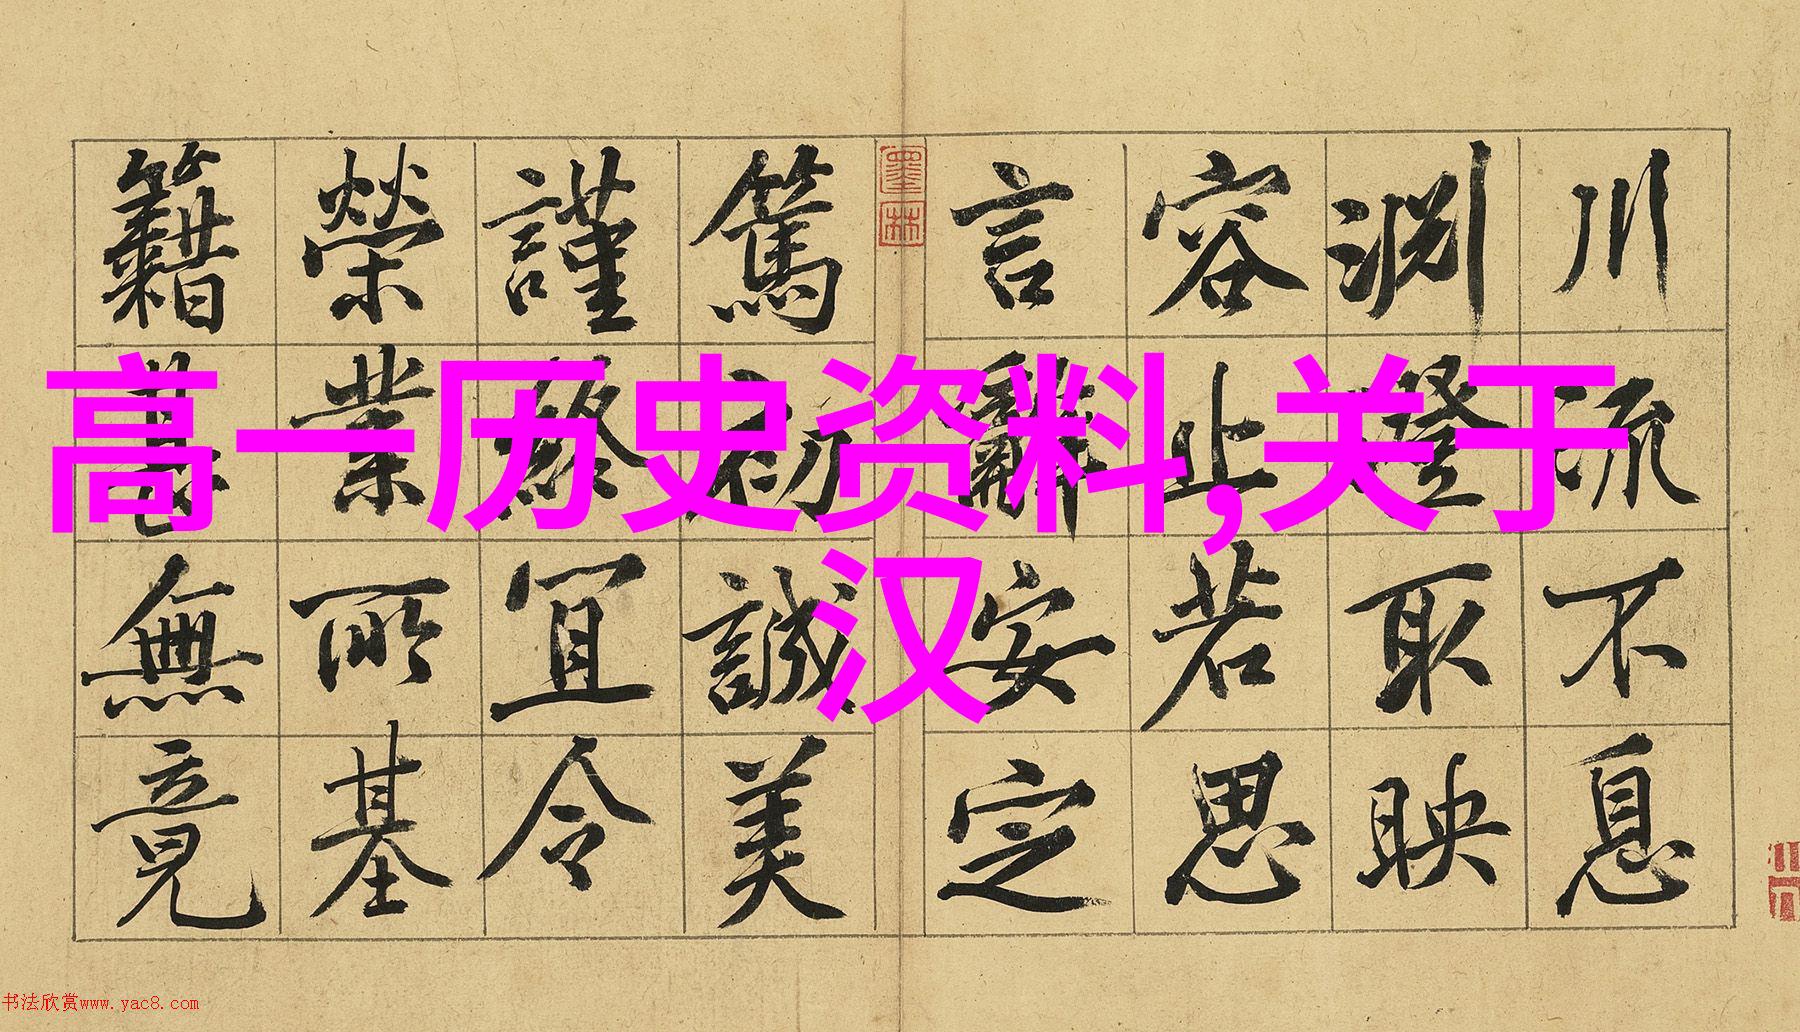 高一历史资料,关于
汉
川流不息
淵澄取映
容止若思
言辭安定
篤初誠美
謹終宜令
榮業所基
籍甚無竟
墨林
书法欣赏www.yac8.com